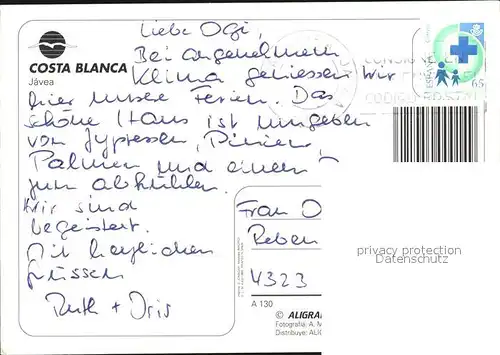 Liebe Ogi,
Bei angenehmem
Klima geniessen wir
hier unsere Ferien. Das
schöne Haus ist umgeben
von Zypressen, Pinien,
Palmen und einem
zum abkühlen.
Wir sind
begeistert.
Mit herzlichen
Grüssen
Ruth + Iris
COSTA BLANCA
Jávea
CONSIGNE
CODIGO POSTAL
ESPAÑA
65
Frau O
Reben
4323
privacy protection
Datenschutz
A 130
© ALIGRA
Fotografía: A. M
Distribuye: ALIG